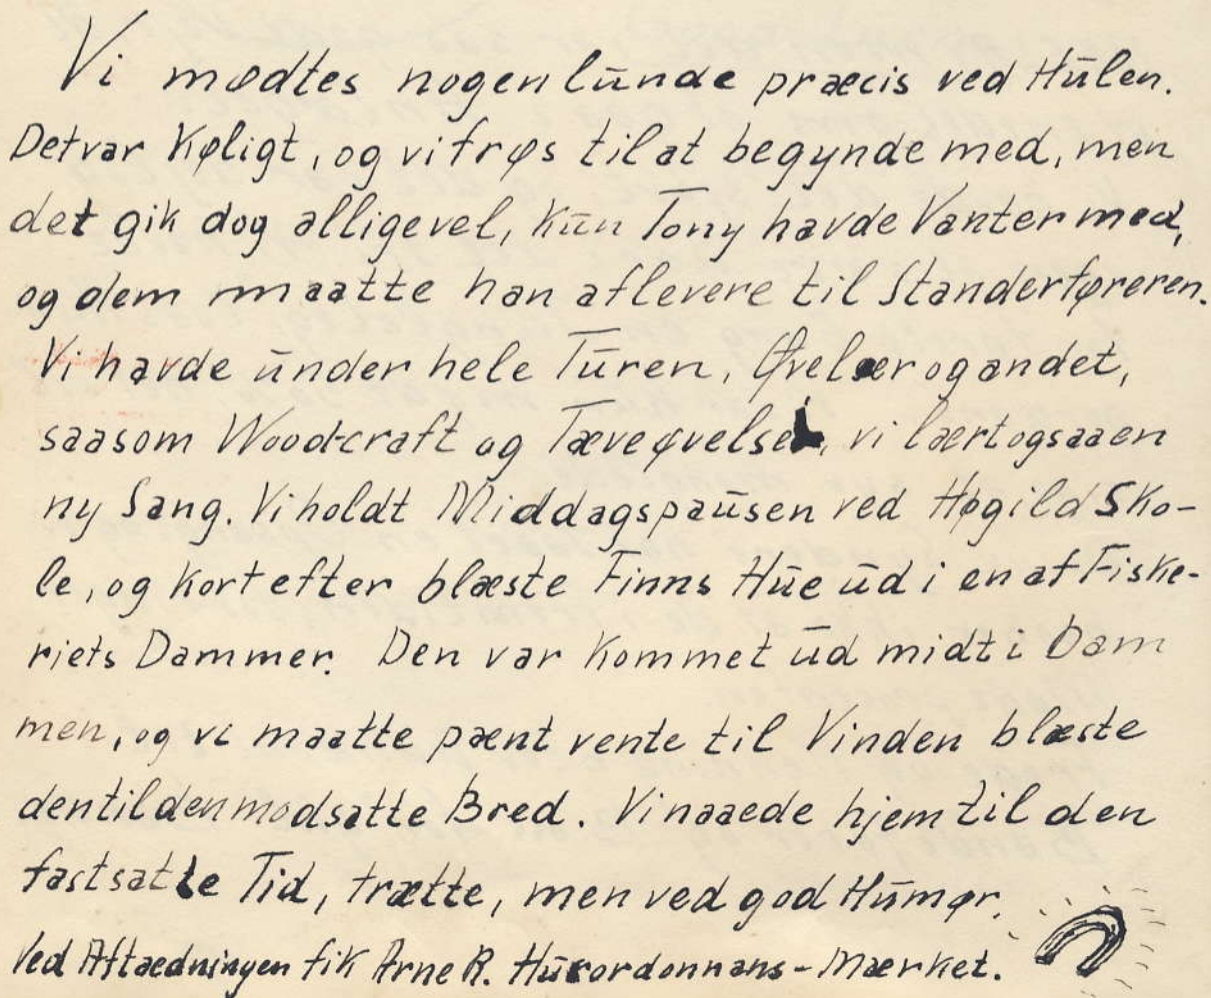 Vi mødtes nogenlunde præcis ved Hulen.
Det var Køligt, og vi frøs til at begynde med, men
det gik dog alligevel, kun Tony havde Vanter med,
og dem maatte han aflevere til Standerføreren.
Vi havde under hele Turen, Øvelser og andet,
saasom Woodcraft og Tæveøvelser, vi lært ogsaa en
ny Sang. Vi holdt Middagspausen ved Høgild Sko-
le, og kort efter blæste Finns Hue ud i en af Fiske-
riets Dammer. Den var kommet ud midt i Dam
men, og vi maatte pænt vente til Vinden blæste
den til den modsatte Bred. Vi naaede hjem til den
fastsatte Tid, trætte, men ved god Humør.
Ved Aftædningen fik Arne R. Husordonnans-Mærket.